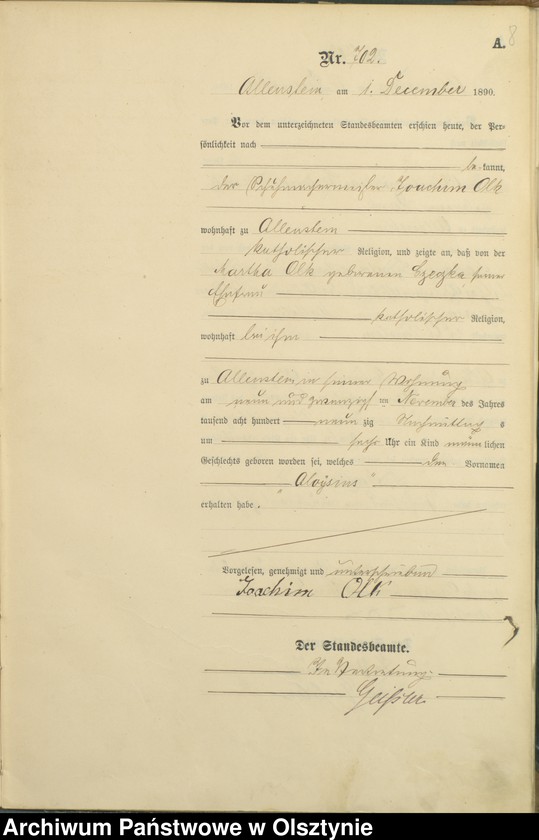 A. 8
Nr. 702.
Allenstein am 1. December 1890.
Vor dem unterzeichneten Standesbeamten erschien heute, der Per-
sönlichkeit nach
be kannt,
der Schuhmachermeister Joachim Olk
wohnhaft zu Allenstein
katholischer Religion, und zeigte an, daß von der
Martha Olk geborenen Czeczka, seiner
Ehefrau
katholischer Religion,
wohnhaft bei ihm
zu Allenstein in seiner Wohnung
am neun und zwanzigsten November des Jahres
tausend acht hundert neun zig Nachmittags
um sechs Uhr ein Kind männ lichen
Geschlechts geboren worden sei, welches den Vornamen
"Aloÿsius"
erhalten habe.
Vorgelesen, genehmigt und unterschrieben
Joachim Olk
Der Standesbeamte.
In Vertretung:
Geißler
Archiwum Państwowe w Olsztynie